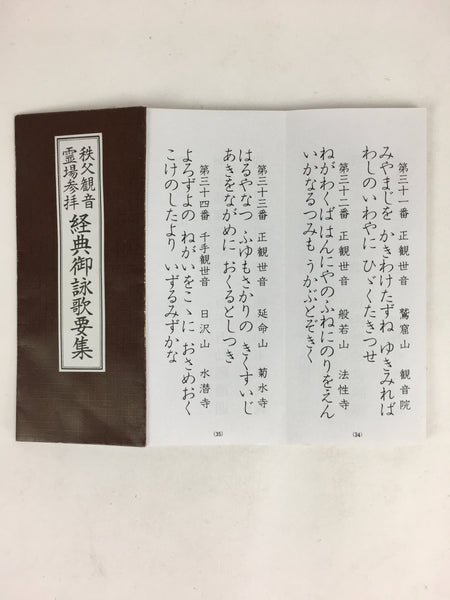 第三十一番 正観世音 鷲窟山 観音院
みやまじを かきわけたずね ゆきみれば
わしのいわやに ひゞくたきつせ
第三十二番 正観世音 般若山 法性寺
ねがわくば はんにやのふねにのりをえん
いかなるつみも うかぶとぞきく
(34)
第三十三番 正観世音 延命山 菊水寺
はるやなつ ふゆもさかりの きくすいじ
あきをながめに おくるとしつき
第三十四番 千手観世音 日沢山 水潜寺
よろずよの ねがいをこゝに おさめおく
こけのしたより いずるみずかな
(35)
秩父観音
霊場参拝
経典御詠歌要集